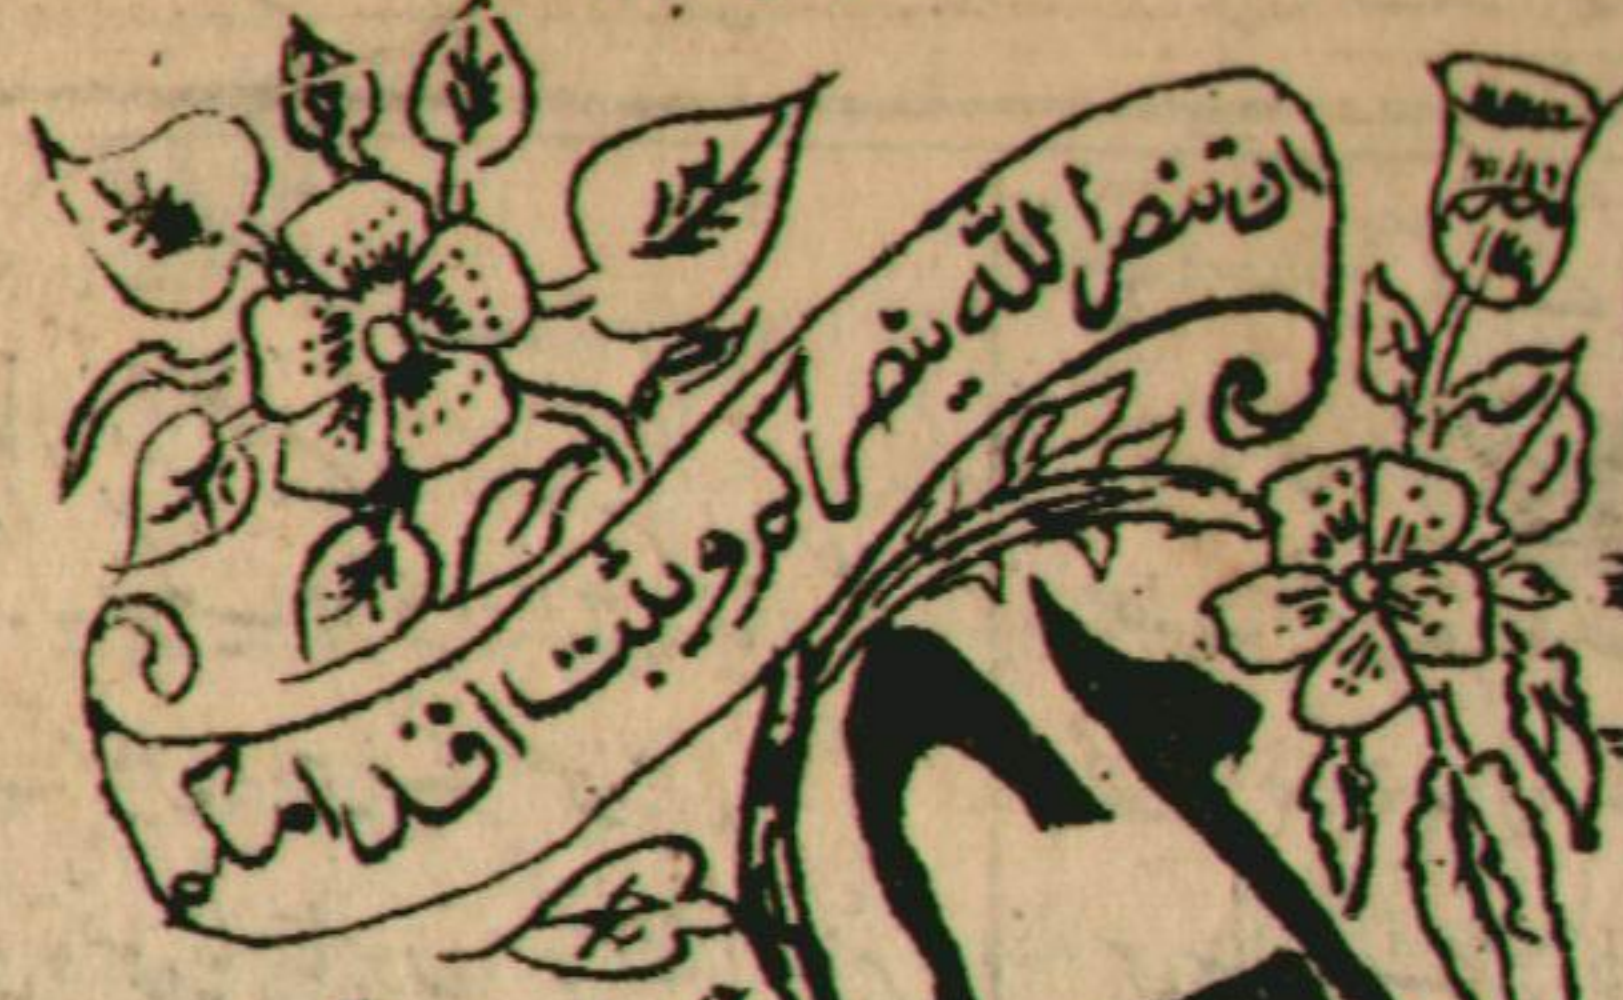 ان تنصر الله ينصركم ويثبت اقدامكم